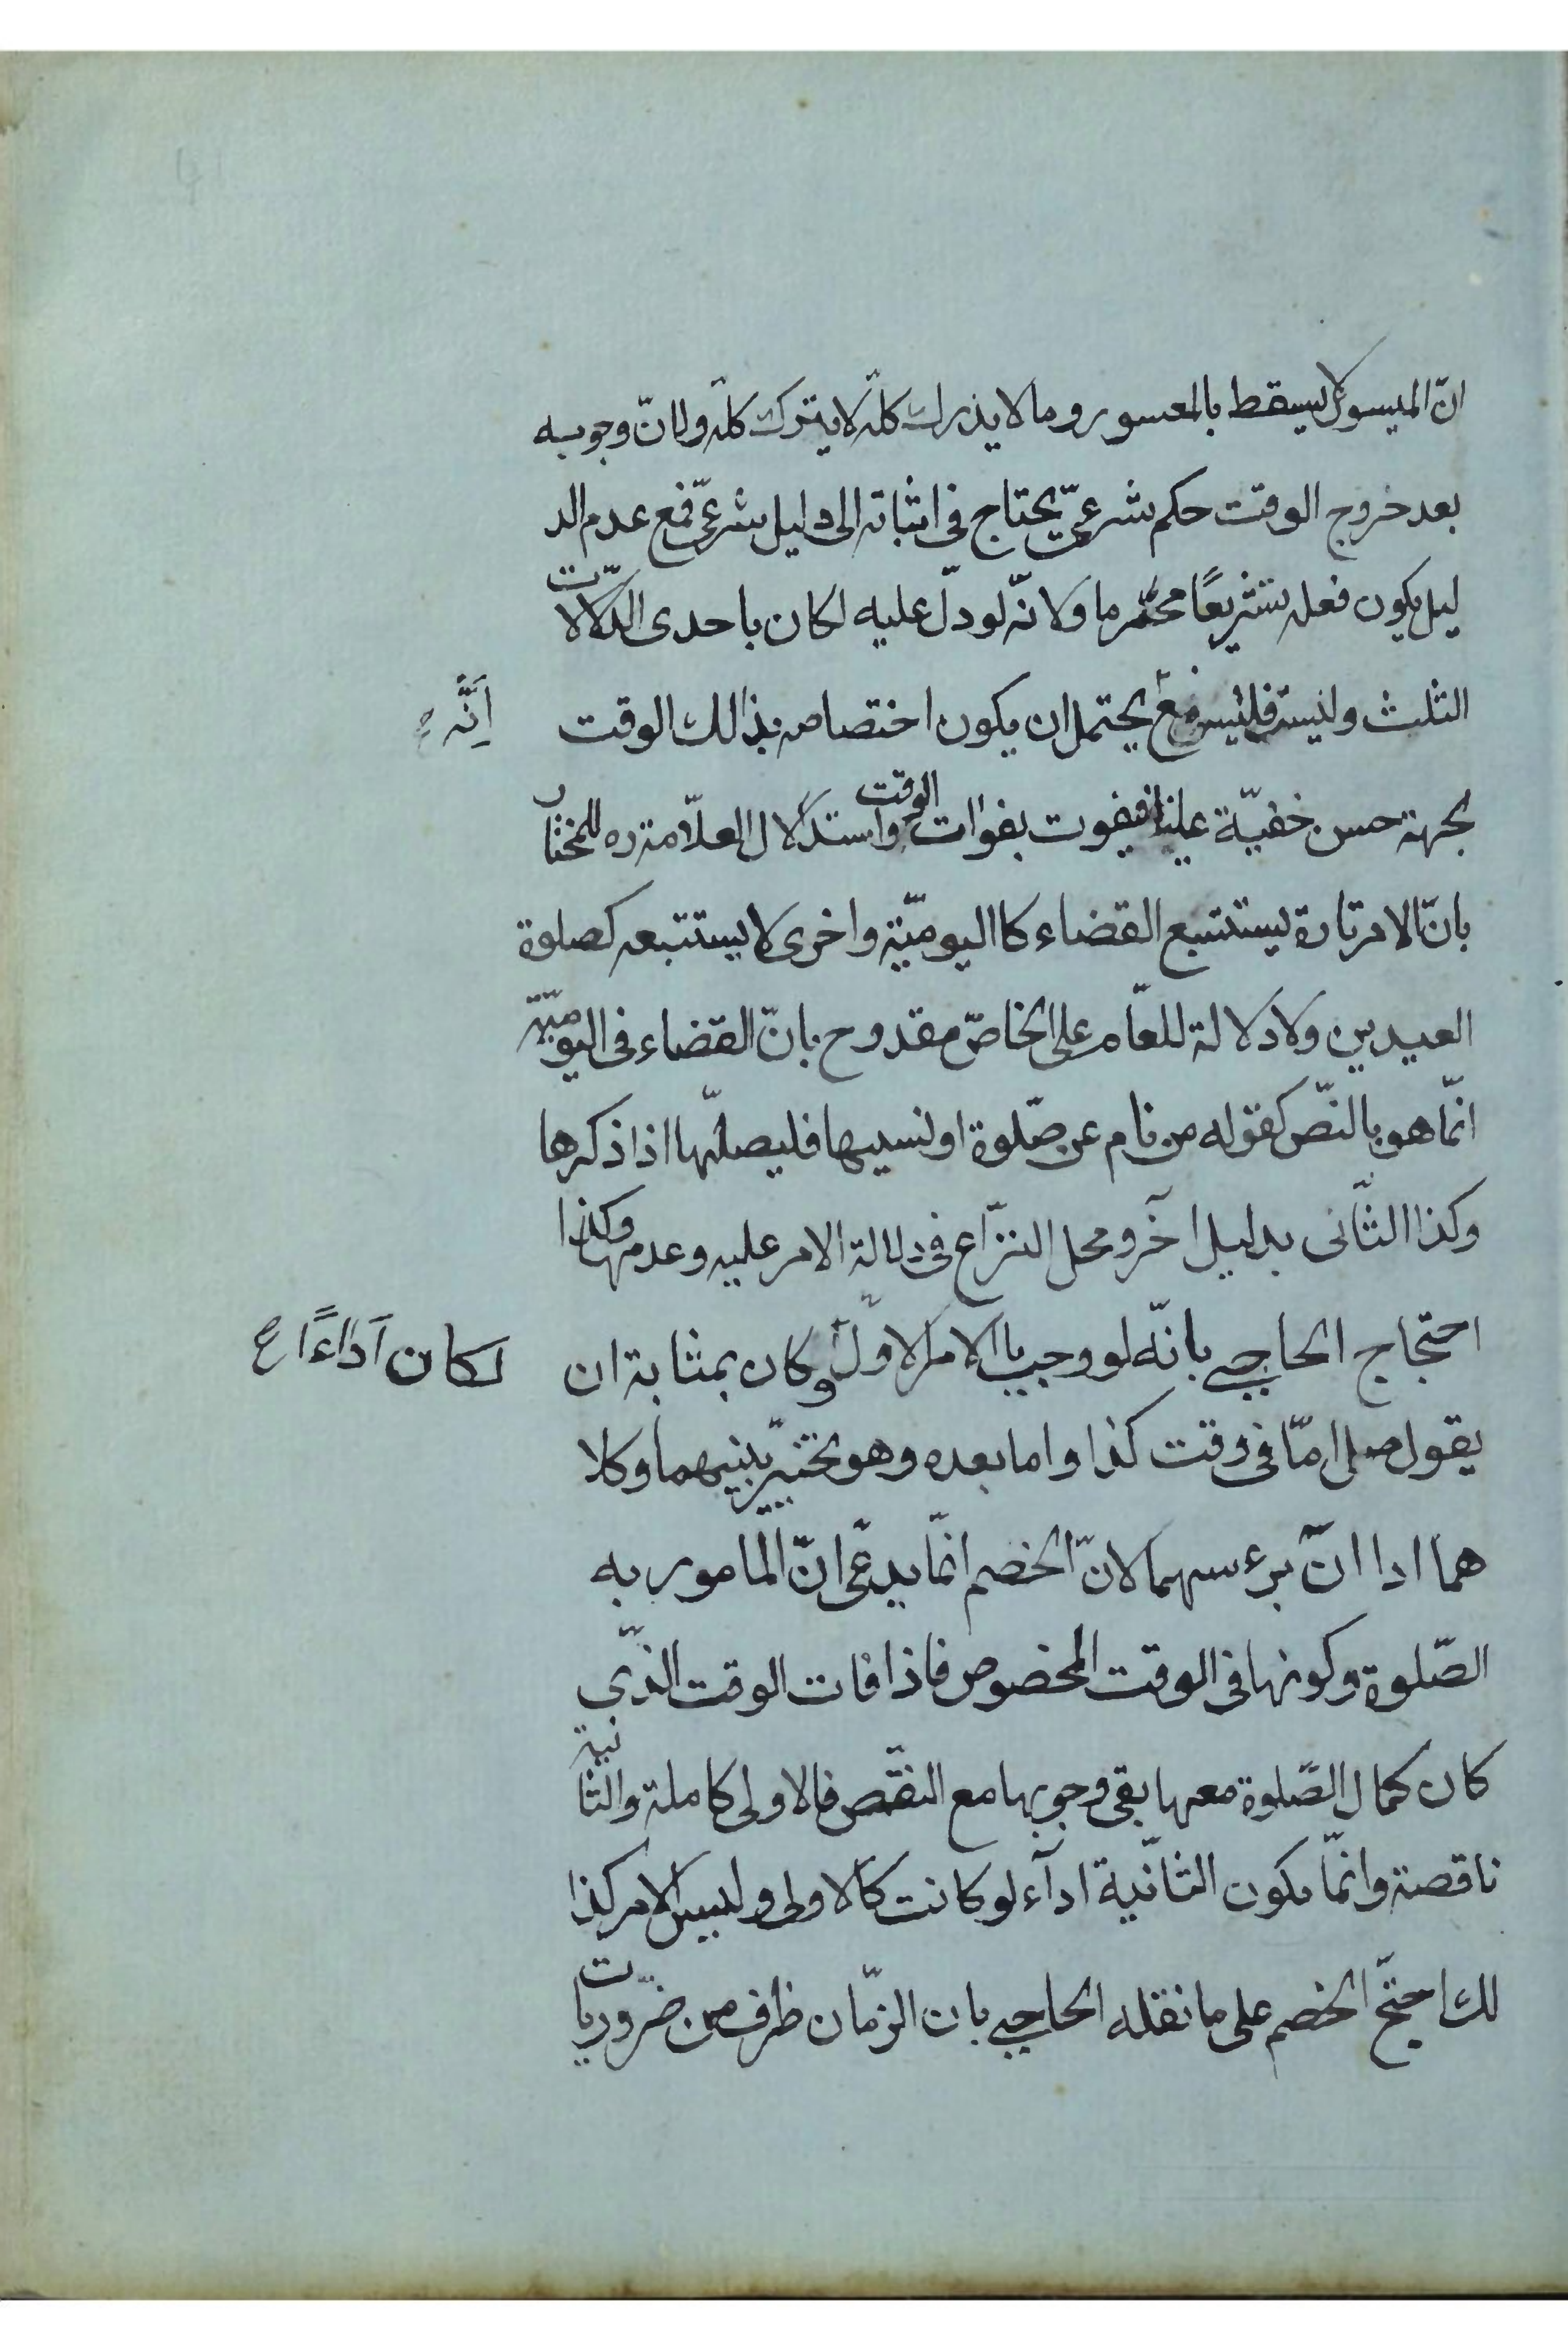 انّ الميسور لا يسقط بالمعسور وما لا يذرك كلّه لا يترك كلّه ولانّ وجوبه
بعد خروج الوقت حكم شرعىّ يحتاج فى اثباته الى دليل شرعىّ فمع عدم الد
ليل يكون فعله تشريعًا محرّما ولانّه لو دلّ عليه لكان باحدى الدّلالات
الثلث وليست فليس مع يحتمل ان يكون اختصاصه بذالك الوقت
انّه ع
لجهة حسن خفيّة علينا فيفوت بفوات الوقت واستدلال العلّامة ره للمختار
بانّ الامر تارة يستتبع القضاء كااليوميّة واخرى لا يستتبعه كصلوة
العيدين ولا دلالة للعامّ على الخاصّ مقدوح بانّ القضاء فى اليوميّة
انّما هو بالنّص كقوله من نام عن صّلوة او نسيها فليصلّها اذا ذكرها
وكذا الثّانى بدليل آخر ومحل النزّاع فى دلالة الامر عليه وعدمها وكذا
احتجاج الحاجبى بانّه لو وجب باالامر الاوّل وكان بمثابة ان
لكان آداءًا ع
يقول صل امّا فى وقت كذا واما بعده وهو تخيير بينهما وكلا
هما ادا انّ برءسهما لانّ الخصم انّما يدعّى انّ المامور به
الصّلوة وكونها فى الوقت المخصوص فاذا فات الوقت الذّى
كان كمال الصّلوة معها بقى وجوبها مع النقّص فالاولى كاملة والثانية
ناقصة وانّما يكون الثانّية اداآء لو كانت كالاولى وليس الامر كذا
لك احتجّ الخصم على ما نقله الحاجبى بان الزمّان ظرف من ضرّوريات